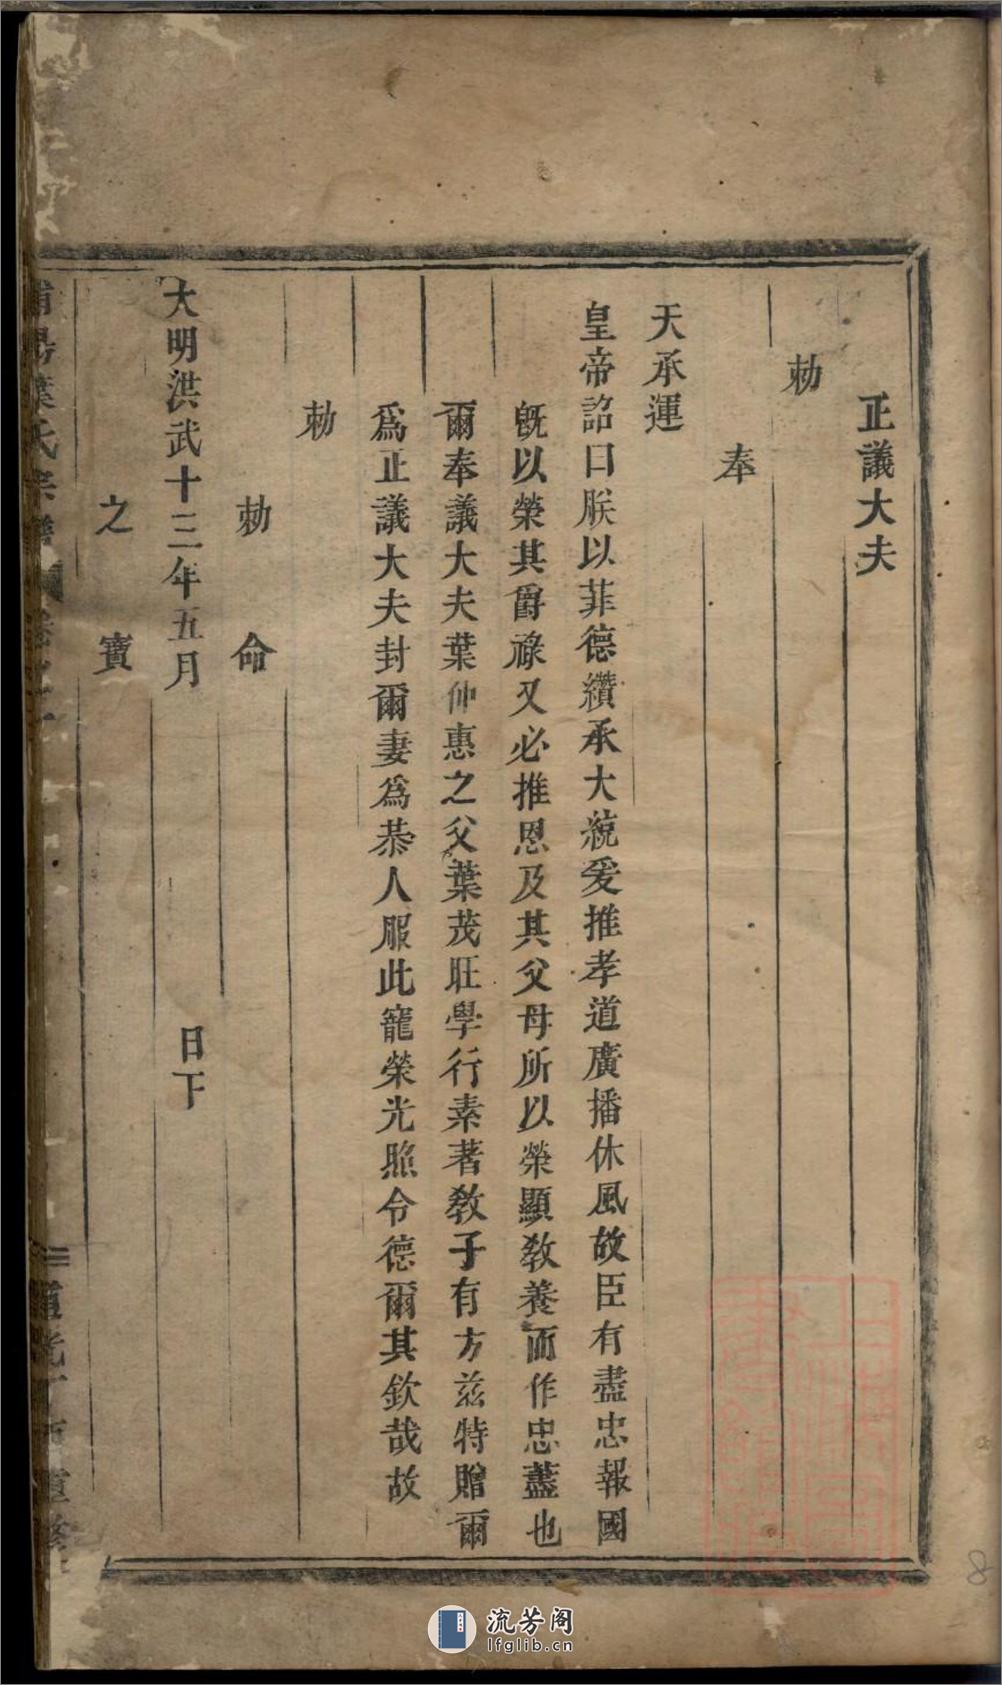 正議大夫
勅
奉
天承運
皇帝詔曰朕以菲德纘承大統爰推孝道廣播休風故臣有盡忠報國
既以榮其爵祿又必推恩及其父母所以榮顯教養而作忠藎也
爾奉議大夫葉仲惠之父葉茂旺學行素著教子有方兹特贈爾
爲正議大夫封爾妻爲恭人服此寵榮光照令德爾其欽哉故
勅
勅命
大明洪武十三年五月 日下
之寶
陽葉氏宗譜 卷之
道光 重修
8
流芳阁
lfglib.cn